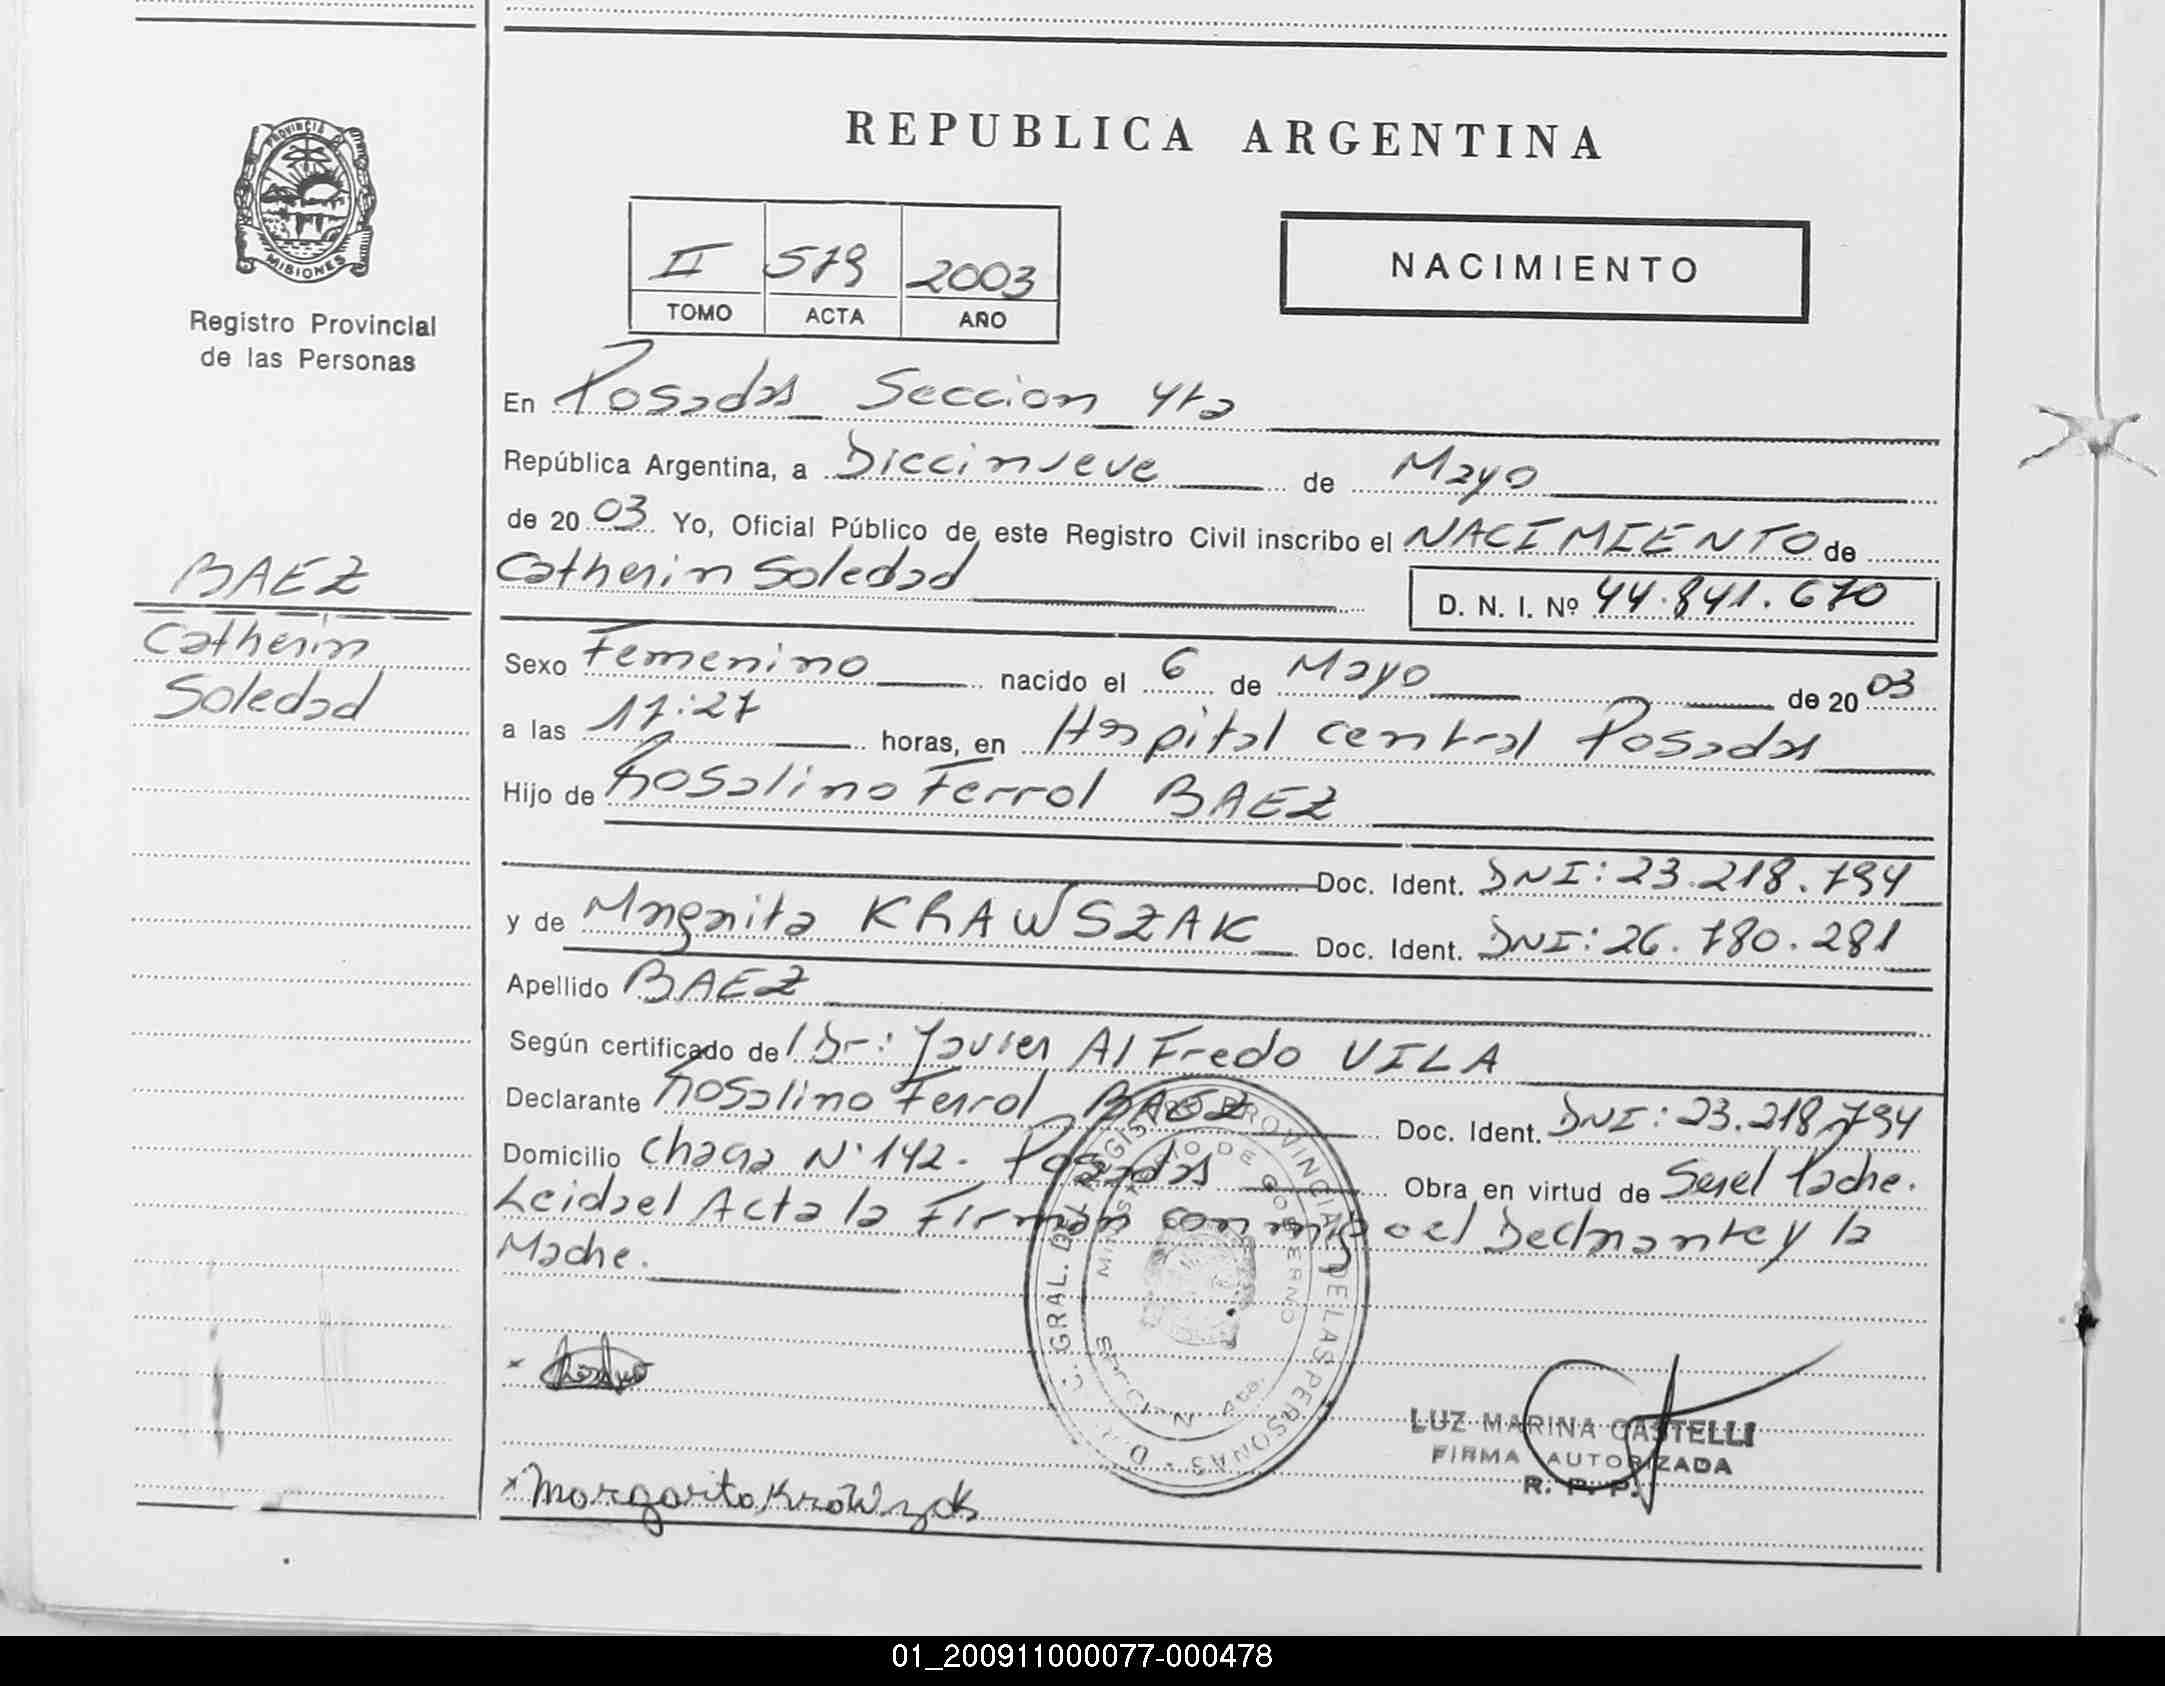 REPUBLICA ARGENTINA
PROVINCIA DE MISIONES
Registro Provincial
de las Personas
II 579 2003
TOMO ACTA AÑO
NACIMIENTO
BAEZ
Catherin
Soledad
En Posadas Seccion 4ta
República Argentina, a Diecinueve de Mayo
de 2003 Yo, Oficial Público de este Registro Civil inscribo el NACIMIENTO de
Catherin Soledad D. N. I. Nº 44.841.670
Sexo Femenino nacido el 6 de Mayo de 2003
a las 17:27 horas, en Hospital central Posadas
Hijo de Rosalino Ferrol BAEZ
Doc. Ident. DNI: 23.218.794
y de Margarita KRAWSZAK Doc. Ident. DNI: 26.780.281
Apellido BAEZ
Según certificado de Dr: Javier Alfredo VILA
Declarante Rosalino Ferrol BAEZ Doc. Ident. DNI: 23.218.794
Domicilio Chacra Nº 142. Posadas Obra en virtud de Ser el Padre.
Leida el Acta la Firman conmigo el Declarante y la
Madre.
D. GRAL. DEL REGISTRO PROVINCIAL DE LAS PERSONAS
MINISTERIO DE GOBIERNO
SECCION 4ta.
LUZ MARINA CASTELLI
FIRMA AUTORIZADA
R. P. P.
x Margarita Krawszak
01_200911000077-000478